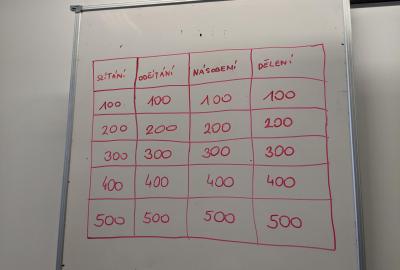 SČÍTÁNÍ ODČÍTÁNÍ NÁSOBENÍ DĚLENÍ
100 100 100 100
200 200 200 200
300 300 300 300
400 400 400 400
500 500 500 500